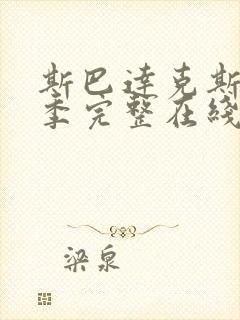 斯巴达克斯
季完整在线
梁泉